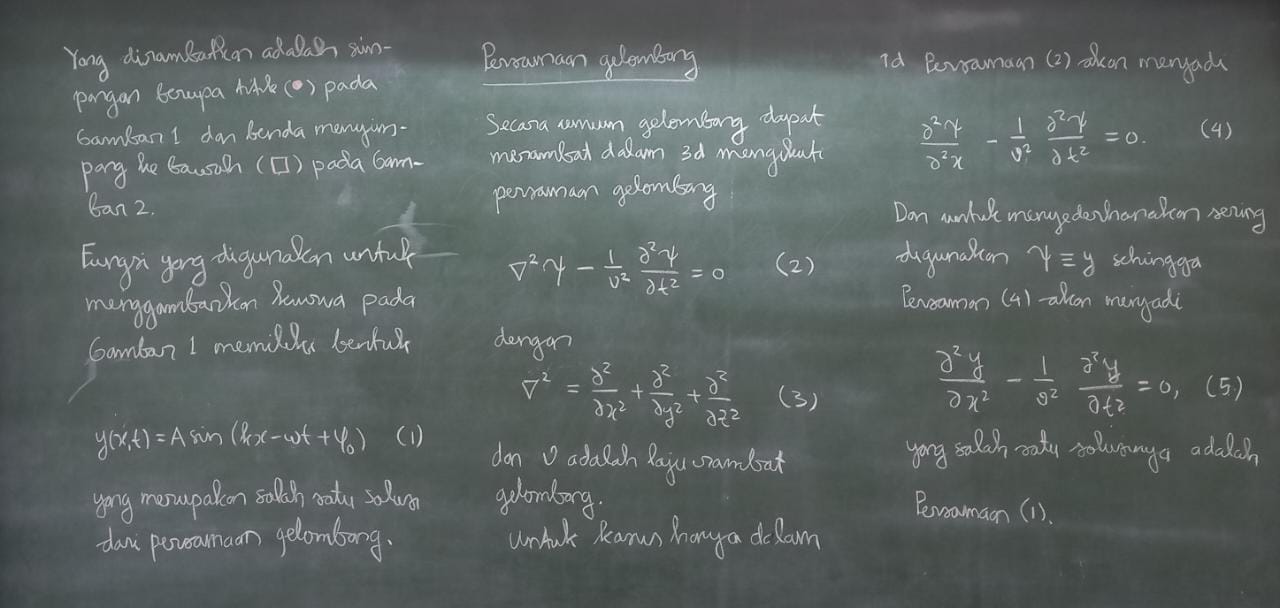 Yang dirambatkan adalah sim-
pangan berupa titik (•) pada
Gambar 1 dan benda menyim-
pang ke bawah (□) pada Gam-
bar 2.
Fungsi yang digunakan untuk
menggambarkan kurva pada
Gambar 1 memiliki bentuk
y(x,t) = A sin (kx - ωt + φ₀) (1)
yang merupakan salah satu solusi
dari persamaan gelombang.
Persamaan gelombang
Secara umum gelombang dapat
merambat dalam 3d mengikuti
persamaan gelombang
∇²ψ - 1/v² ∂²ψ/∂t² = 0 (2)
dengan
∇² = ∂²/∂x² + ∂²/∂y² + ∂²/∂z² (3)
dan v adalah laju rambat
gelombang.
Untuk kasus hanya dalam
1d Persamaan (2) akan menjadi
∂²ψ/∂²x - 1/v² ∂²ψ/∂t² = 0. (4)
Dan untuk menyederhanakan sering
digunakan ψ ≡ y sehingga
Persaman (4) akan menjadi
∂²y/∂x² - 1/v² ∂²y/∂t² = 0, (5)
yang salah satu solusinya adalah
Persamaan (1).